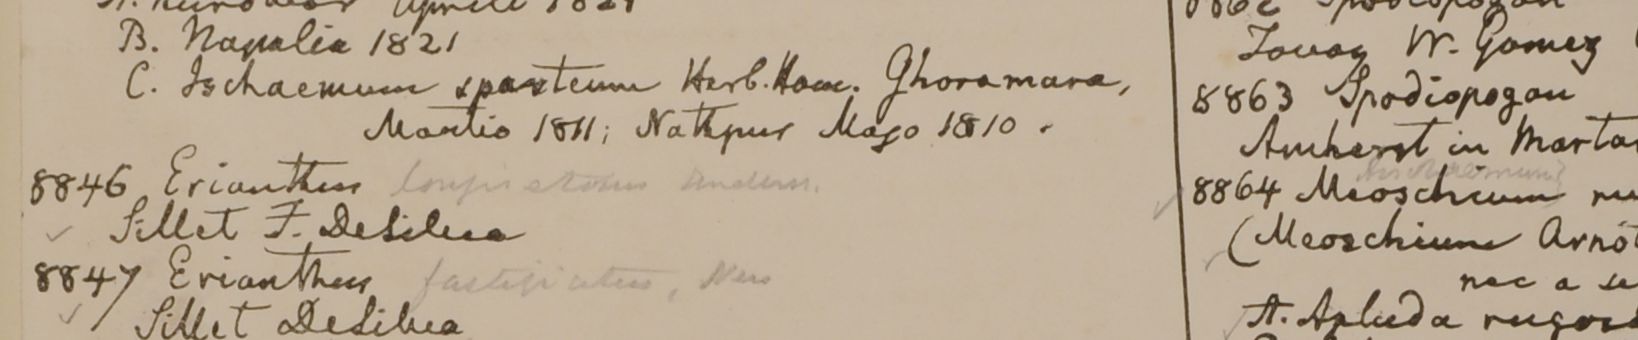 Aprili 1821
B. Napalia 1821
C. Ischaemum sparteum Herb. Ham. Ghoramara,
Martio 1811; Nathpur Majo 1810.
8846 Erianthus longisetosus Anders.
Sillet F. DeSilva
8847 Erianthus fastigiatus, Nees
Sillet DeSilva
8862 Spodiopogon
Tavoy W. Gomez
8863 Spodiopogon
Amherst in Marta
8864 Meoschium ru
(Meoschium Arnot
nec a se
A. Apluda rugos